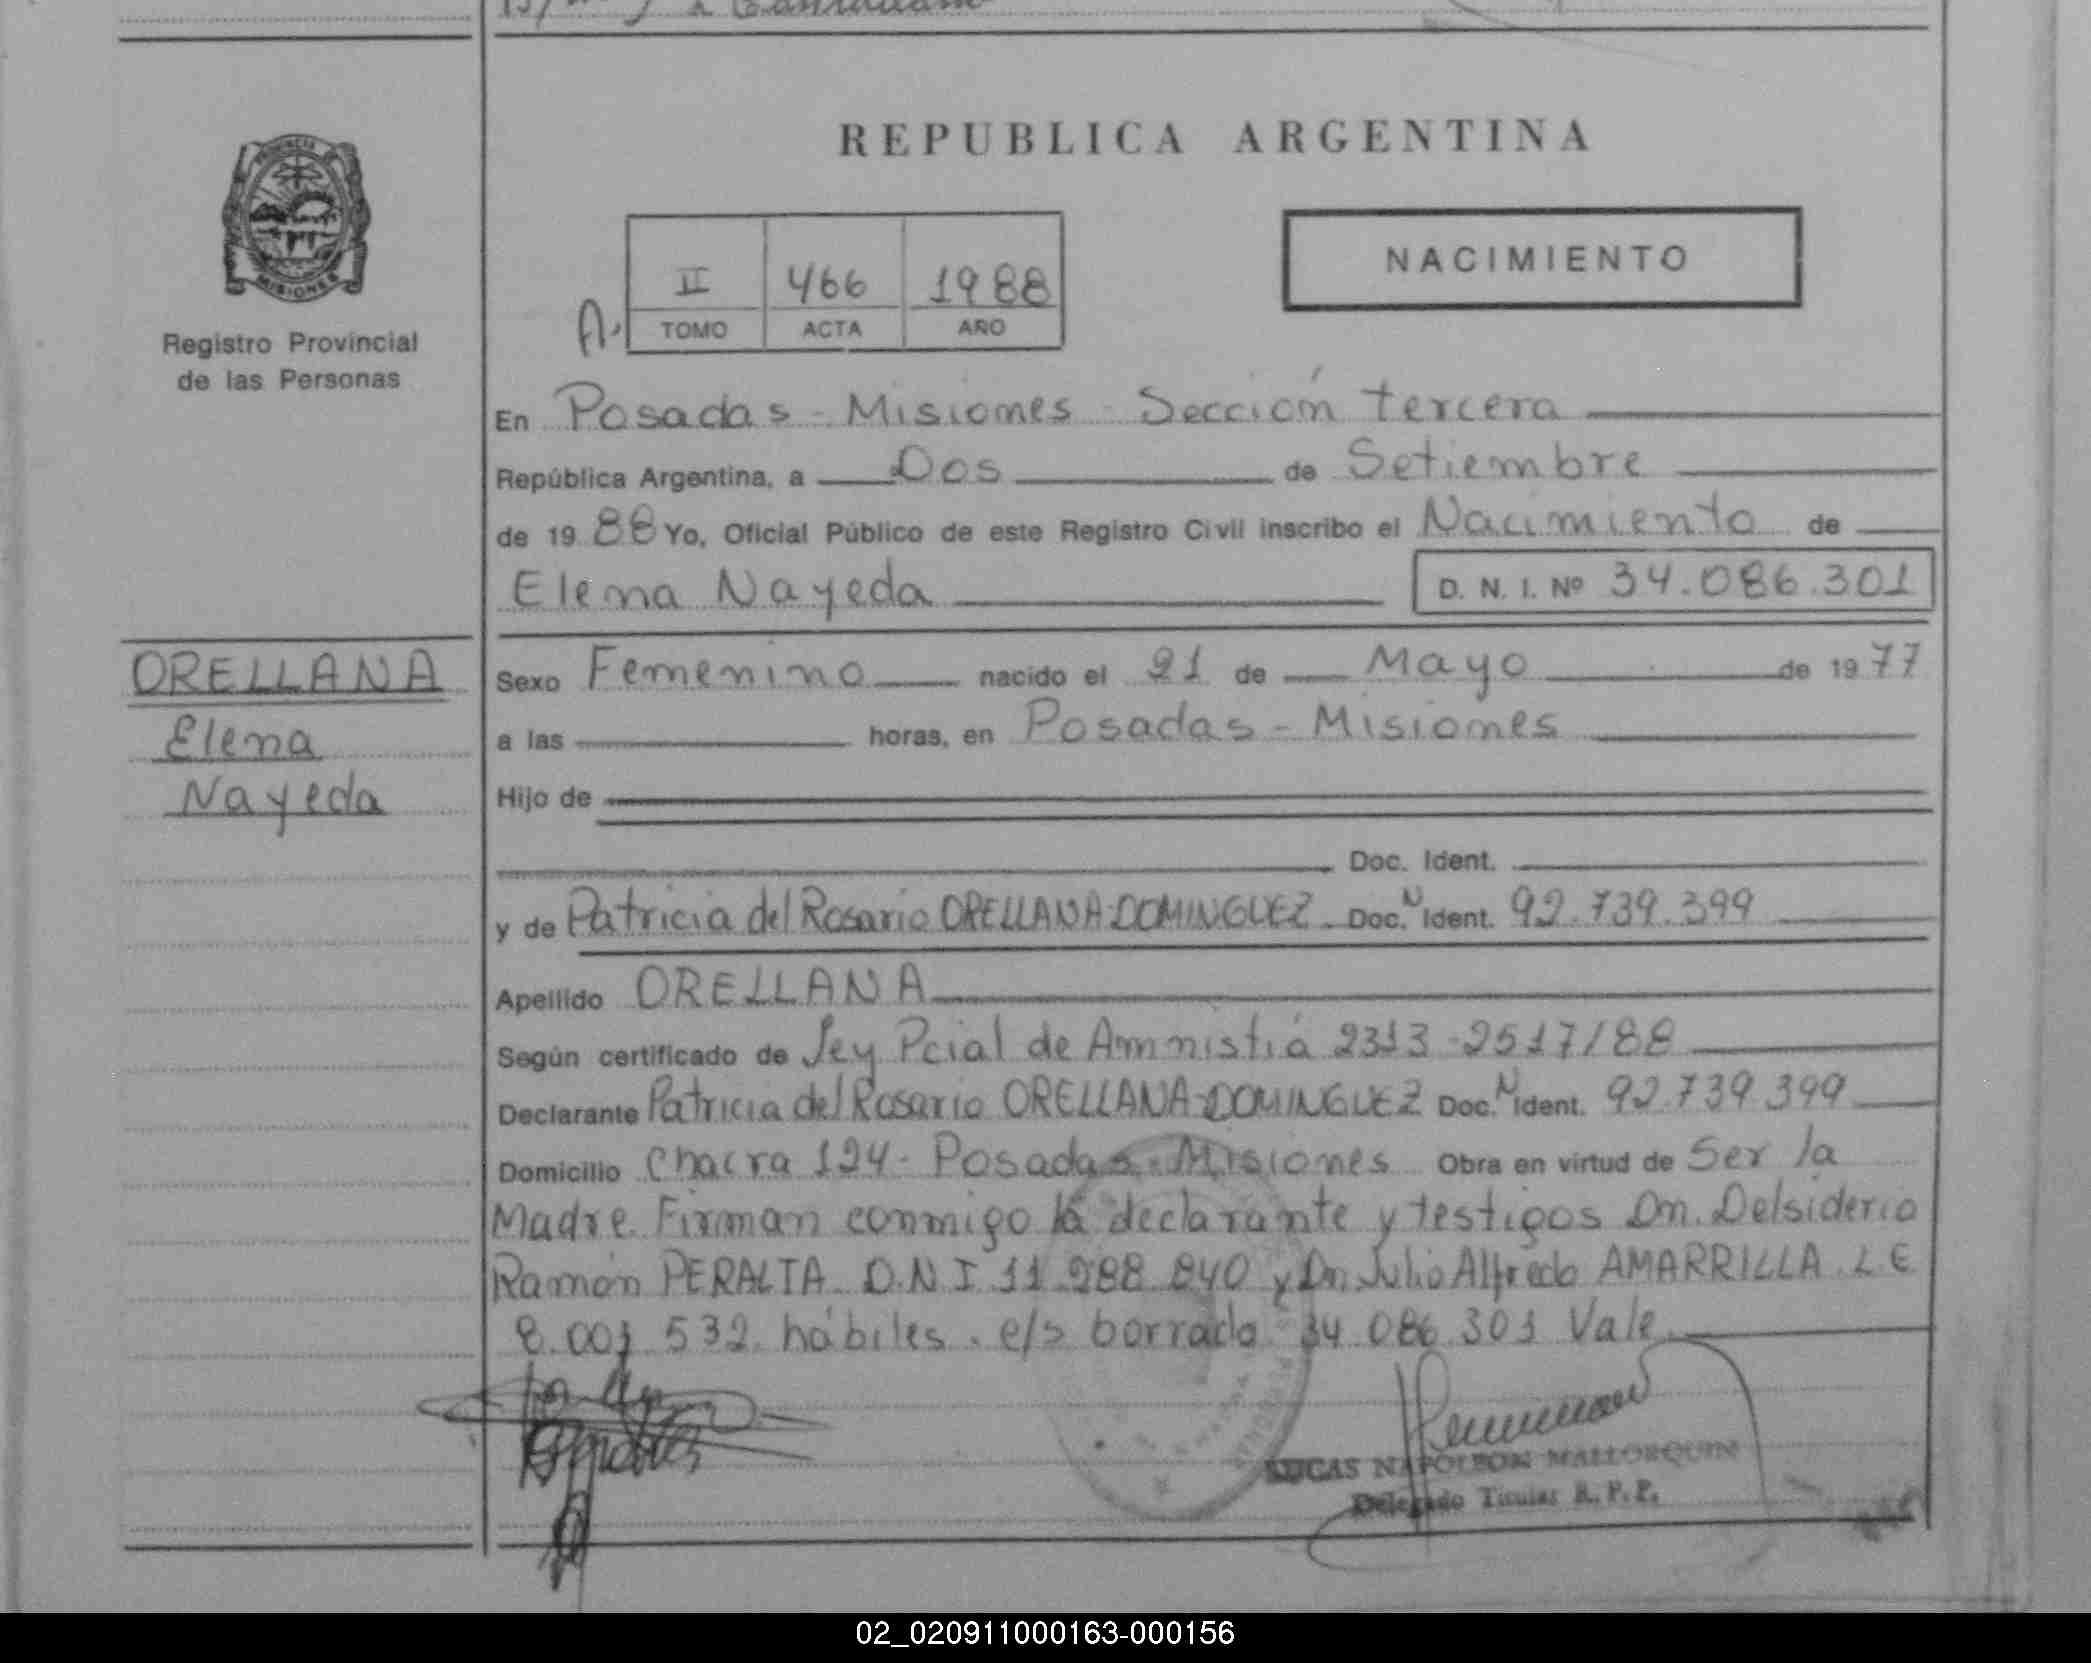 REPUBLICA ARGENTINA
PROVINCIA DE
MISIONES
Registro Provincial
de las Personas
II 466 1988
A. TOMO ACTA AÑO
NACIMIENTO
En Posadas - Misiones - Sección tercera
República Argentina, a Dos de Setiembre
de 1988 Yo, Oficial Público de este Registro Civil inscribo el Nacimiento de
Elena Nayeda D. N. I. Nº 34.086.301
ORELLANA
Elena
Nayeda
Sexo Femenino nacido el 21 de Mayo de 1977
a las horas, en Posadas - Misiones
Hijo de
Doc. Ident.
y de Patricia del Rosario ORELLANA-DOMINGUEZ Doc. N Ident. 92.739.399
Apellido ORELLANA
Según certificado de Ley Pcial de Amnistiá 2313-2517/88
Declarante Patricia del Rosario ORELLANA-DOMINGUEZ Doc. N Ident. 92.739.399
Domicilio Chacra 124 - Posadas - Misiones Obra en virtud de Ser la
Madre. Firman conmigo la declarante y testigos Dn. Delsiderio
Ramón PERALTA D.N.I 11.288.840 y Dn. Julio Alfredo AMARRILLA L E
8.001.532 hábiles. e/s borrado 34.086.301 Vale
LUCAS NAPOLEON MALLORQUIN
Delegado Titular R. P. P.
02_020911000163-000156